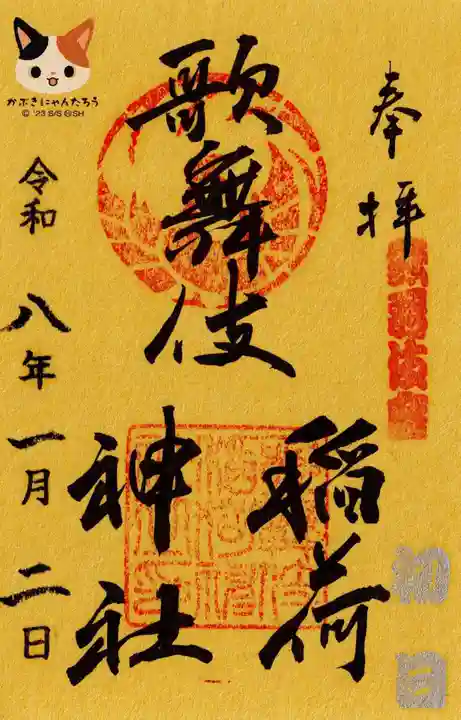 奉拝
歌舞伎
稲荷
神社
令和八年一月二日
かぶきにゃんたろう
© '23 S/S ⓊSH